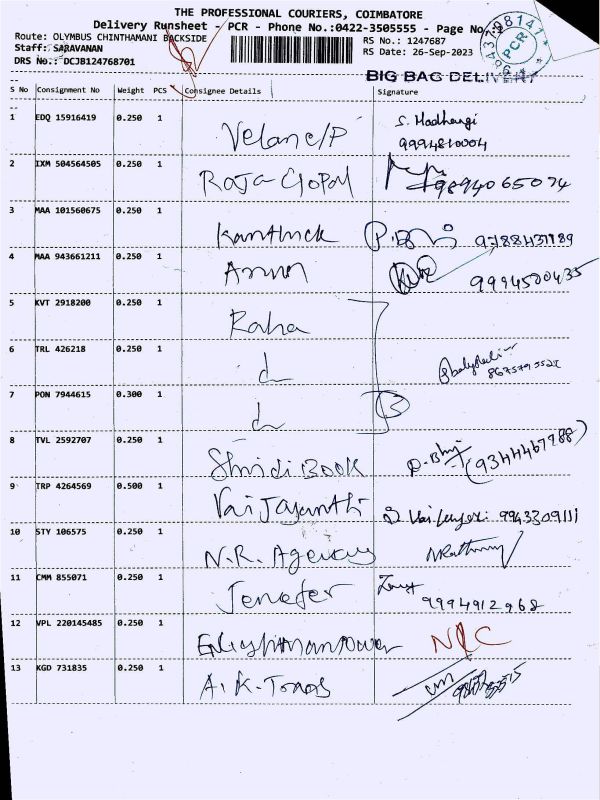 THE PROFESSIONAL COURIERS, COIMBATORE
Delivery Runsheet - PCR - Phone No.:0422-3505555 - Page No.:
Route: OLYMBUS CHINTHAMANI BACKSIDE
Staff: SARAVANAN
DRS No.: DCJB124768701
RS No.: 1247687
RS Date: 26-Sep-2023
PCR
BIG BAG DELIVERY
S No Consignment No Weight PCS Consignee Details Signature
1 EDQ 15916419 0.250 1 S. Madhangi
9994810004
2 IXM 504564505 0.250 1 Raja Gopal 9894065074
3 MAA 101560675 0.250 1 Karthick 9788437989
4 MAA 943661211 0.250 1 Arun 9994500435
5 KVT 2918200 0.250 1 Raha
6 TRL 426218 0.250 1
7 PON 7944615 0.300 1
8 TVL 2592707 0.250 1 Shridi Book (9344467988)
9 TRP 4264569 0.500 1 Vaijayanthi 9943309111
10 STY 106575 0.250 1 N.R. Agency
11 CMM 855071 0.250 1 Jenefer
9994912968
12 VPL 220145485 0.250 1 N/C
13 KGD 731835 0.250 1 A.K. Traders